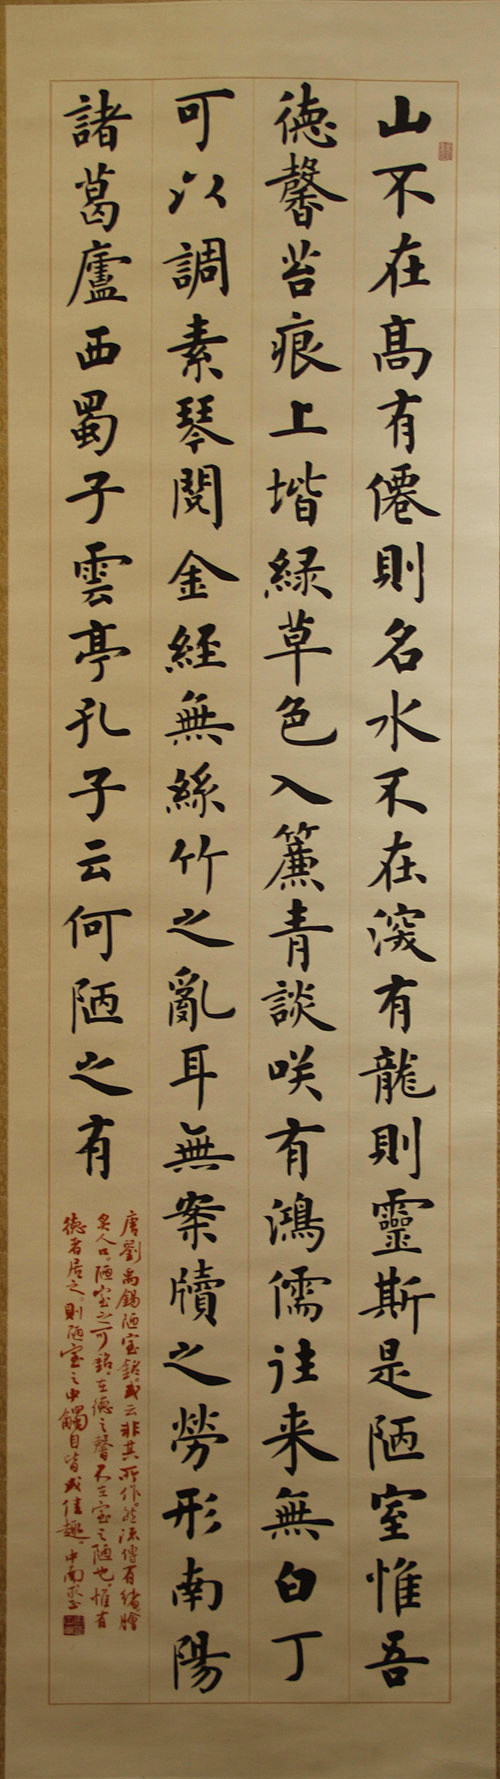 山不在高有僊則名水不在深有龍則靈斯是陋室惟吾
德馨苔痕上堦緑草色入簾青談咲有鴻儒往来無白丁
可以調素琴閱金經無絲竹之亂耳無案牘之勞形南陽
諸葛廬西蜀子雲亭孔子云何陋之有
唐劉禹錫陋室銘或云非其所作然流傳有緒膾
炙人口陋室之可銘在德之馨不在室之陋也惟有
德者居之則陋室之中觸目皆成佳趣中南